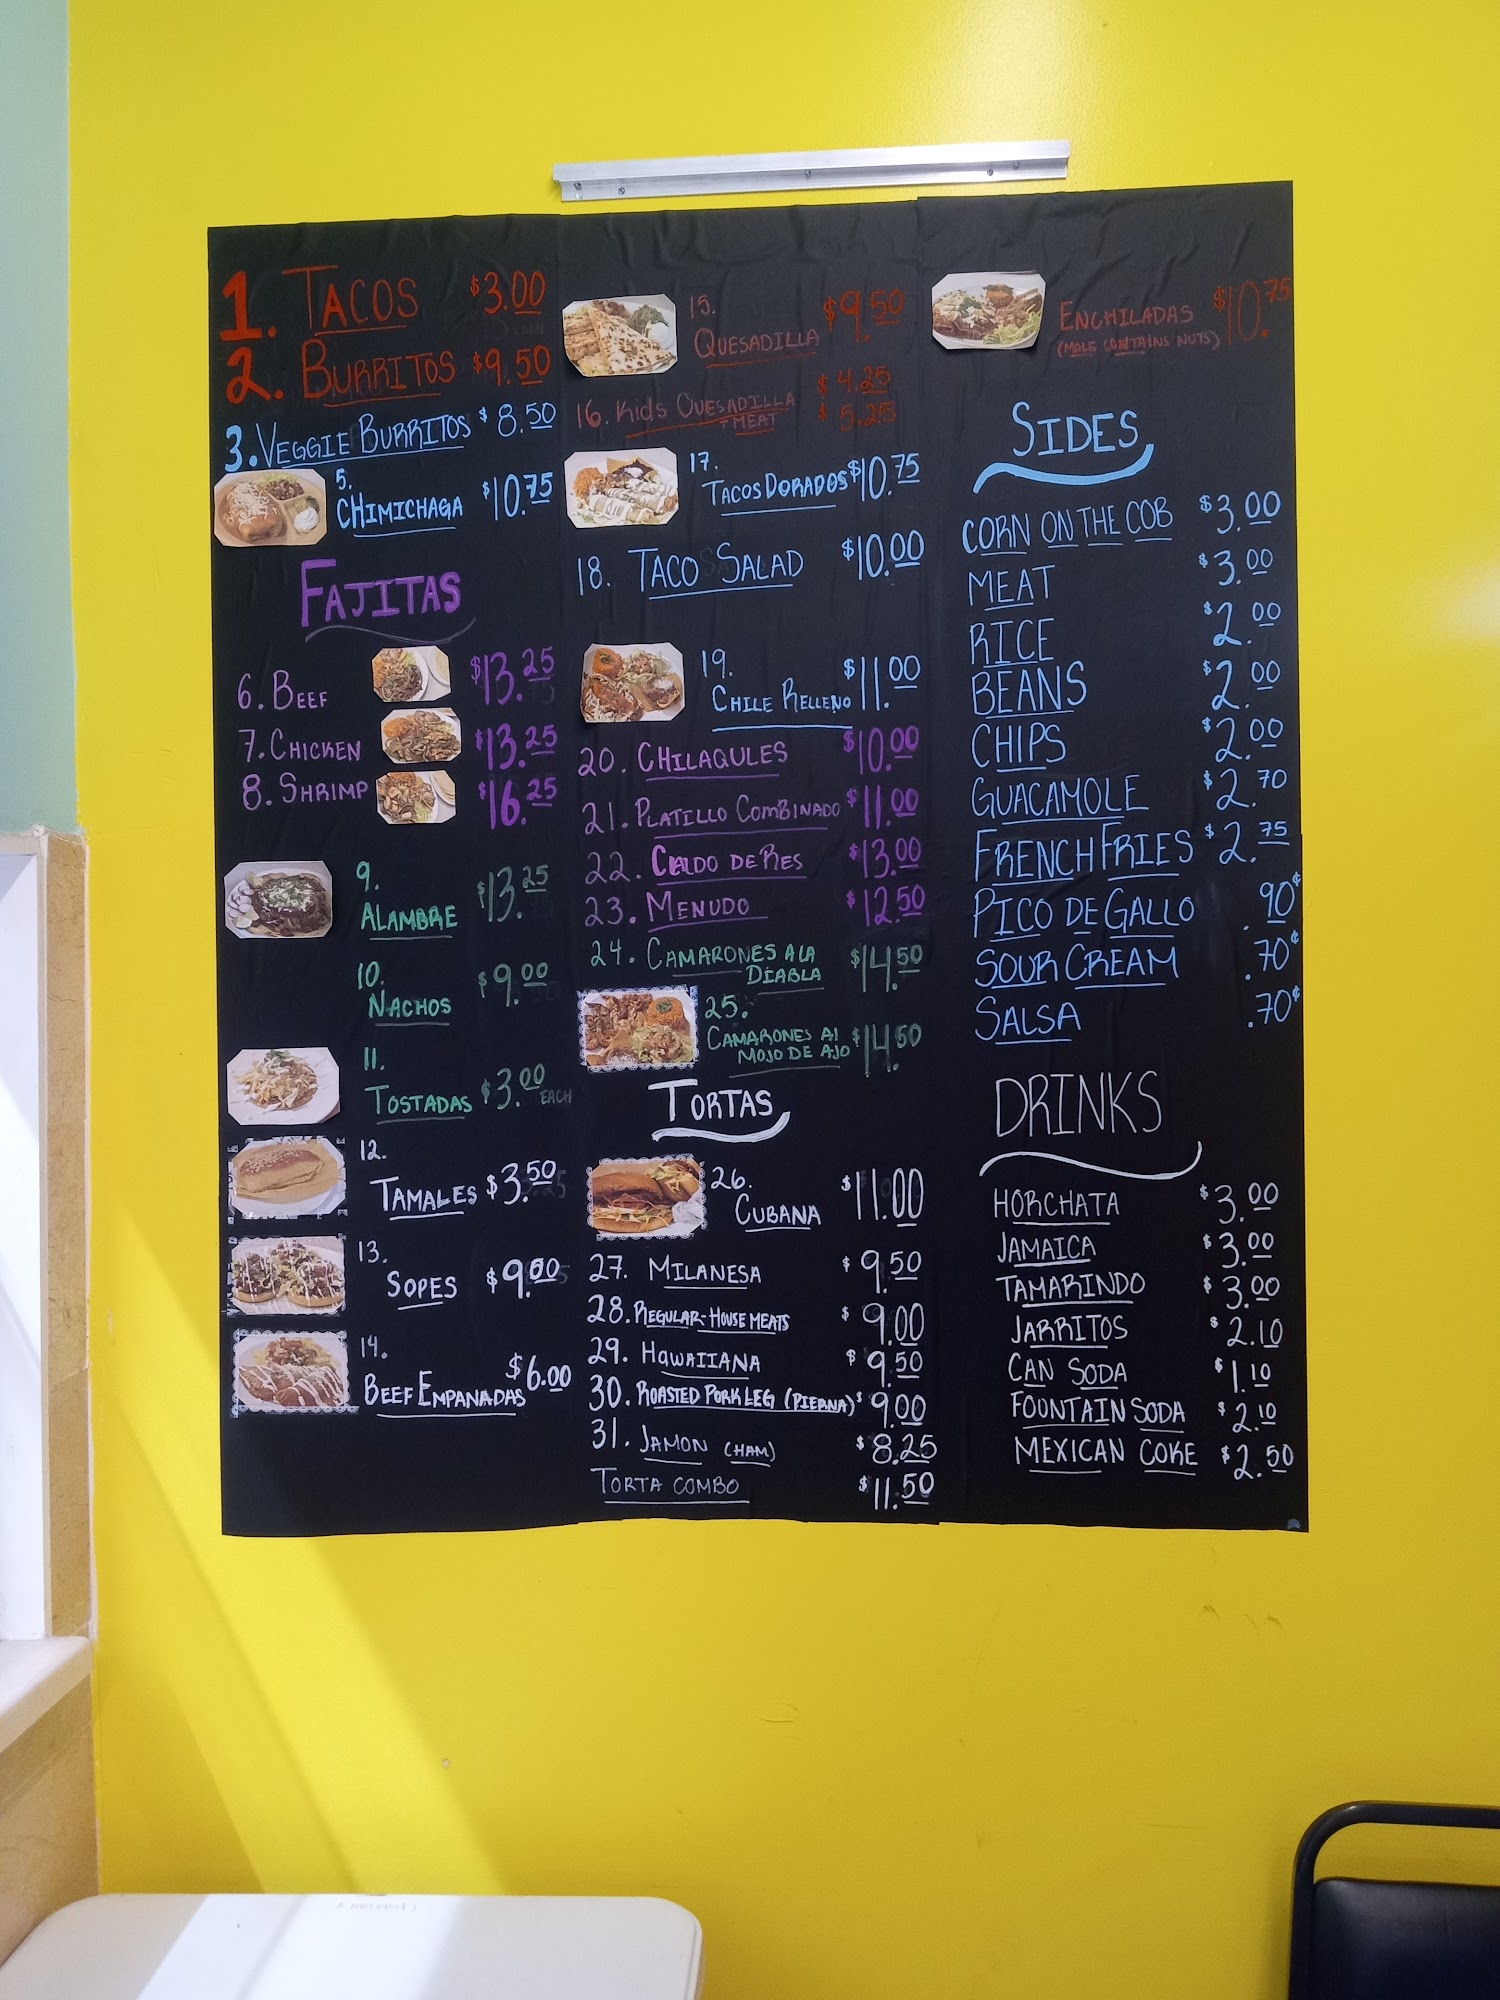 1. TACOS $3.00
2. BURRITOS $9.50
3. VEGGIE BURRITOS $8.50
5. CHIMICHAGA $10.75
FAJITAS
6. BEEF $13.25
7. CHICKEN $13.25
8. SHRIMP $16.25
9. ALAMBRE $13.25
10. NACHOS $9.00
11. TOSTADAS $3.00 EACH
12. TAMALES $3.50
13. SOPES $9.00
14. BEEF EMPANADAS $6.00
15. QUESADILLA $9.50
16. KidS QUESADILLA $4.25
+ MEAT $5.25
17. TACOS DORADOS $10.75
18. TACO SALAD $10.00
19. CHILE RELLENO $11.00
20. CHILAQULES $10.00
21. PLATILLO COMBINADO $11.00
22. CALDO DE RES $13.00
23. MENUDO $12.50
24. CAMARONES A LA DIABLA $14.50
25. CAMARONES Al MOJO DE AJO $14.50
TORTAS
26. CUBANA $11.00
27. MILANESA $9.50
28. REGULAR-HOUSE MEATS $9.00
29. HAWAIIANA $9.50
30. ROASTED PORK LEG (PIERNA) $9.00
31. JAMON (HAM) $8.25
TORTA COMBO $11.50
ENCHILADAS $10.75
(MOLE CONTAINS NUTS)
SIDES
CORN ON THE COB $3.00
MEAT $3.00
RICE $2.00
BEANS $2.00
CHIPS $2.00
GUACAMOLE $2.70
FRENCH FRIES $2.75
PICO DE GALLO .90¢
SOUR CREAM .70¢
SALSA .70¢
DRINKS
HORCHATA $3.00
JAMAICA $3.00
TAMARINDO $3.00
JARRITOS $2.10
CAN SODA $1.10
FOUNTAIN SODA $2.10
MEXICAN COKE $2.50